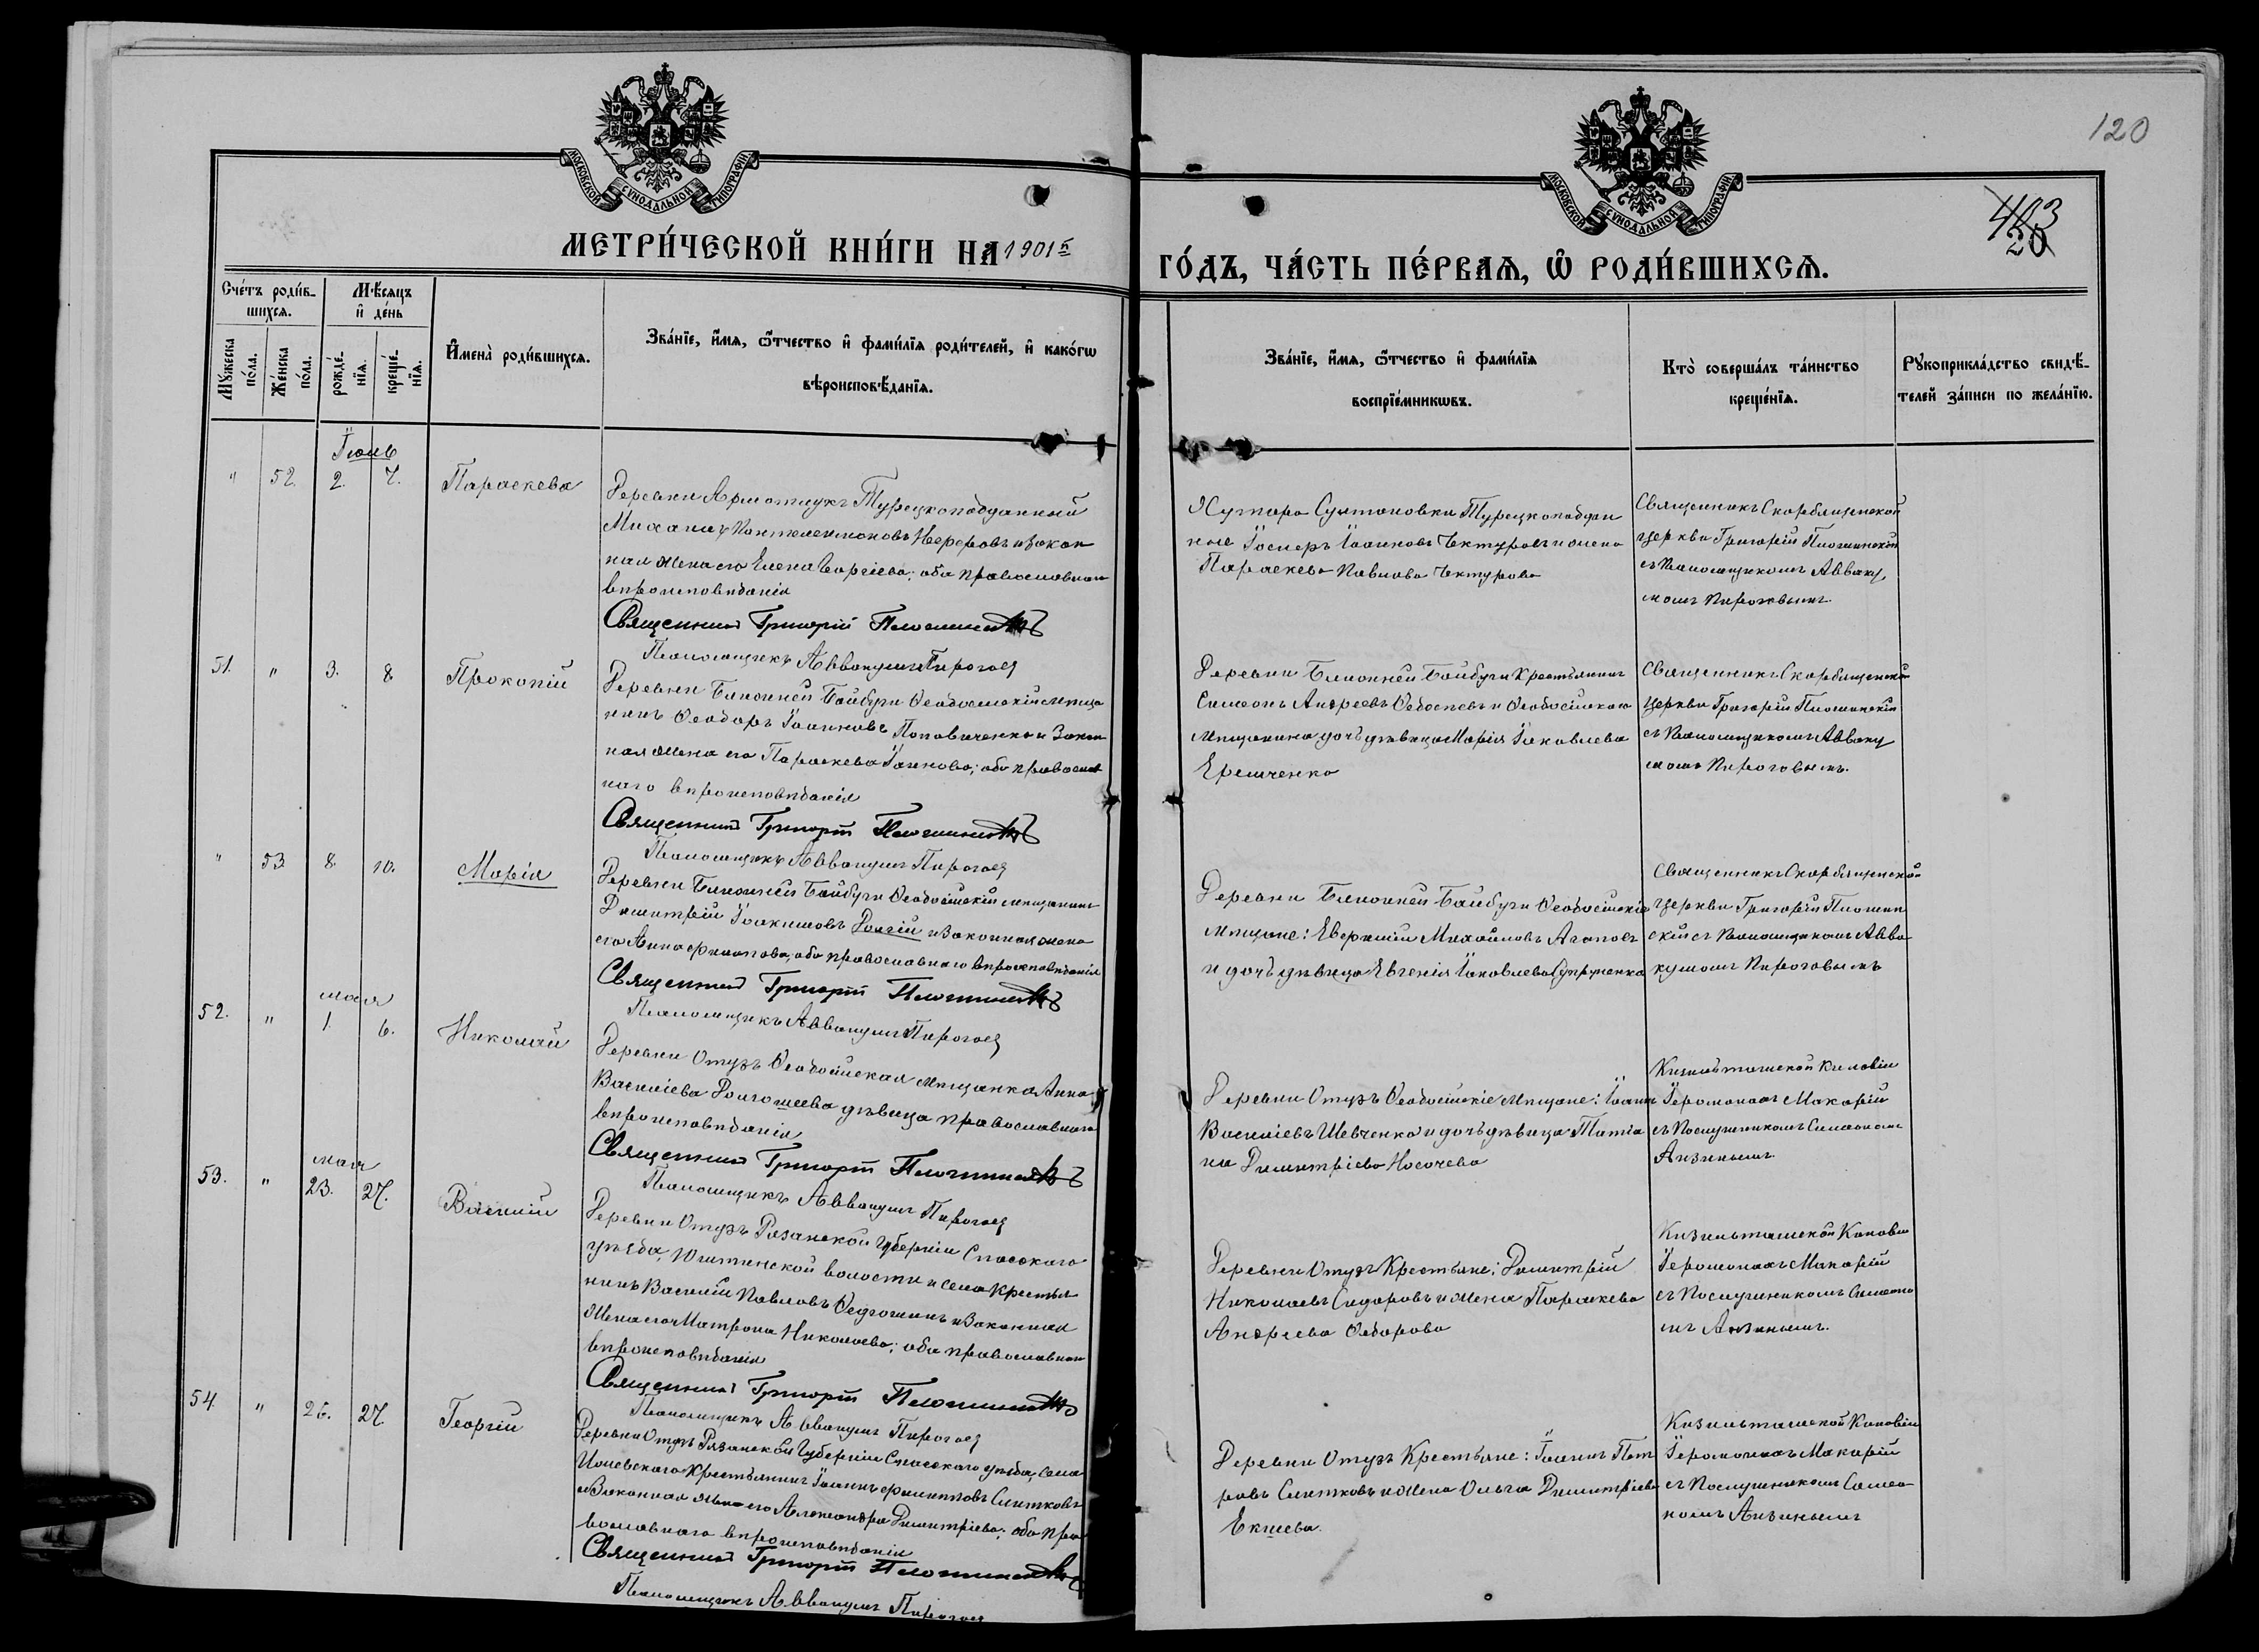 120
403
20
МОСКОВСКОЙ СУНОДАЛЬНОЙ ТИПОГРАФІИ
МОСКОВСКОЙ СУНОДАЛЬНОЙ ТИПОГРАФІИ
МЕТРИ́ЧЕСКОЙ КНИ́ГИ НА 1901й
ГО́ДЪ, ЧА́СТЬ ПЕ́РВАЯ, Ѡ҆ РОДИ́ВШИХСЯ.
Сче́тъ роди́в-
шихся.
Мѣ́сяцъ
и҆ де́нь
Мꙋ́жеска по́ла.
Же́нска по́ла.
рожде́-нїѧ.
креще́-нїѧ.
И҆мена̀ роди́вшихся.
Зва́нїе, и҆́мя, ѻ҆́тчество и҆ фами́лїя роди́телей, и҆ како́гѡ
вѣроисповѣ́данїя.
Зва́нїе, и҆́мя, ѻ҆́тчество и҆ фами́лїя
воспрїе́мникѡвъ.
Кто̀ соверша́лъ та́инство
креще́нїя.
Рꙋкоприкла́дство свидѣ́-
телей за́писи по жела́нїю.
Іюль
" 52. 2. 7. Параскева
Деревни Армотлукъ Турецкоподданный
Михаилъ Пантелеимоновъ и закон
ная жена его Елена Георгіева; оба православнаго
вѣроисповѣданія
Священникъ Григорій
Псаломщикъ Аввакумъ Пироговъ
Хутора Султановки Турецкоподдан
ные Іоаннов и жена
Параскева Павлова
Священникъ Скорбященской
церкви Григорій
съ Псаломщикомъ Авваку
момъ Пироговымъ.
51. " 3. 8. Прокопій
Деревни Ближней Байбуги Ѳеодосійскій мѣща
нинъ Ѳеодоръ Іоанновъ Поповиченко и закон
ная жена его Параскева Іоаннова; оба православ
наго вѣроисповѣданія
Священникъ Григорій
Псаломщикъ Аввакумъ Пироговъ
Деревни Ближней Байбуги Крестьянинъ
Симеонъ Андреевъ и Ѳеодосійскаго
Мѣщанина дочь дѣвица Марія Іаковлева
Еремченко
Священникъ Скорбященской
Церкви Григорій
съ Псаломщикомъ Авваку
момъ Пироговымъ.
" 53 8. 10. Марія
Деревни Ближней Байбуги Ѳеодосійскій мѣщанинъ
Димитрій Іоакимовъ Долгій и законная жена
его Анна Филипова; оба православнаго вѣроисповѣданія
Священникъ Григорій
Псаломщикъ Аввакумъ Пироговъ
Деревни Ближней Байбуги Ѳеодосійскіе
Мѣщане: Михайловъ Агаповъ
и дочь дѣвица Евгенія Іаковлева
Священникъ Скорбященской
Церкви Григорій
съ Псаломщикомъ Авва
кумомъ Пироговымъ
мая
52. " 1. 6. Николай
Деревни Отузъ Ѳеодосійская мѣщанка Анна
Василіева Долгошеева дѣвица православнаго
вѣроисповѣданія
Священникъ Григорій
Псаломщикъ Аввакумъ Пироговъ
Деревни Отузъ Ѳеодосійскіе Мѣщане: Іоаннъ
Василіевъ Шевченко и дочь дѣвица Татіа
на Димитріева Носочева
Кизильташской Киновіи
Іеромонахъ Макарій
съ Послушникомъ Симеономъ
мая
53. " 23. 27. Василій
Деревни Отузъ Рязанской Губерніи Спасскаго
уѣзда, волости и села крестья
нинъ Василій Павловъ и законная
жена его Матрона Николаева; оба православнаго
вѣроисповѣданія
Священникъ Григорій
Псаломщикъ Аввакумъ Пироговъ
Деревни Отузъ Крестьяне: Димитрій
Николаевъ Сидоровъ и жена Параскева
Андреева
Кизильташской Киновіи
Іеромонахъ Макарій
съ Послушникомъ Симеоно
мъ
54 " 26. 27. Георгій
Деревни Отузъ Рязанской Губерніи Спасскаго уѣзда, села
крестьянинъ Іоаннъ Филипповъ Слитковъ
и законная жена его Александра Димитріева; оба пра
вославнаго вѣроисповѣданія
Священникъ Григорій
Псаломщикъ Аввакумъ Пироговъ
Деревни Отузъ Крестьяне: Іоаннъ Пет
ровъ Слитковъ и жена Ольга Димитріева
Кизильташской Киновіи
Іеромонахъ Макарій
съ Послушникомъ Симео
номъ